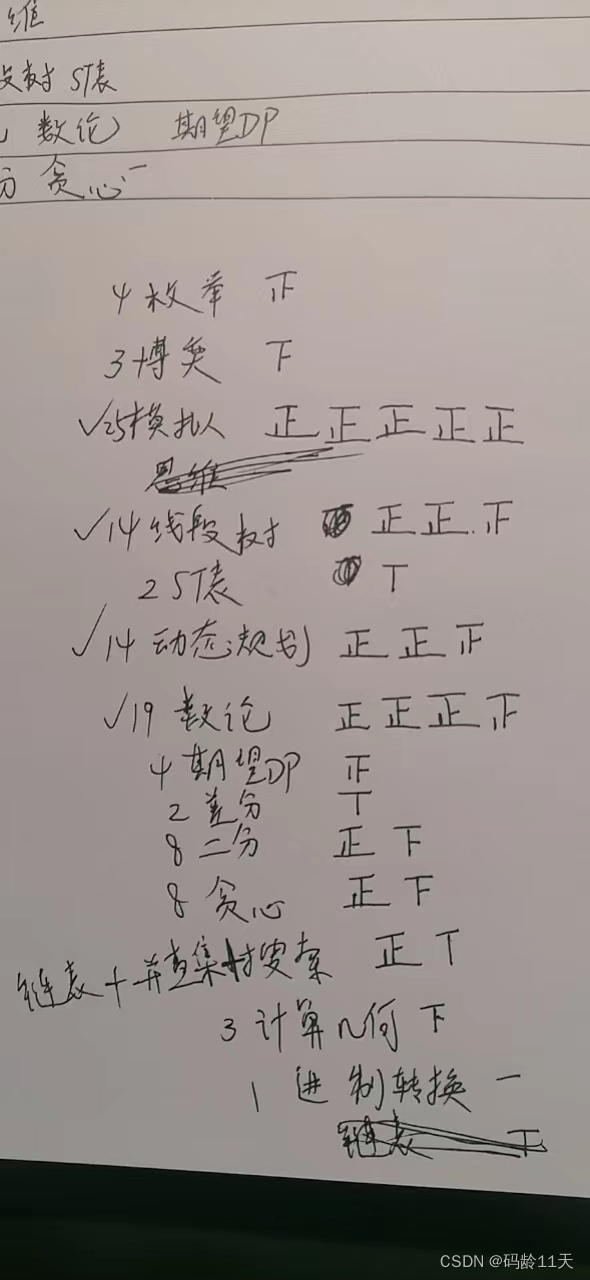 维
段树 ST表
数论 期望DP
分 贪心一
4 枚举 正
3 博奕 下
✓25 模拟 正 正 正 正 正
思维
✓14 线段树 正 正 正
2 ST表 T
✓14 动态规划 正 正 正
✓19 数论 正 正 正 正
4 期望DP 正
2 差分 T
8 二分 正 下
8 贪心 正 下
链表+并查集+搜索 正 T
3 计算几何 下
1 进制转换 一
链表 下
CSDN @码龄11天